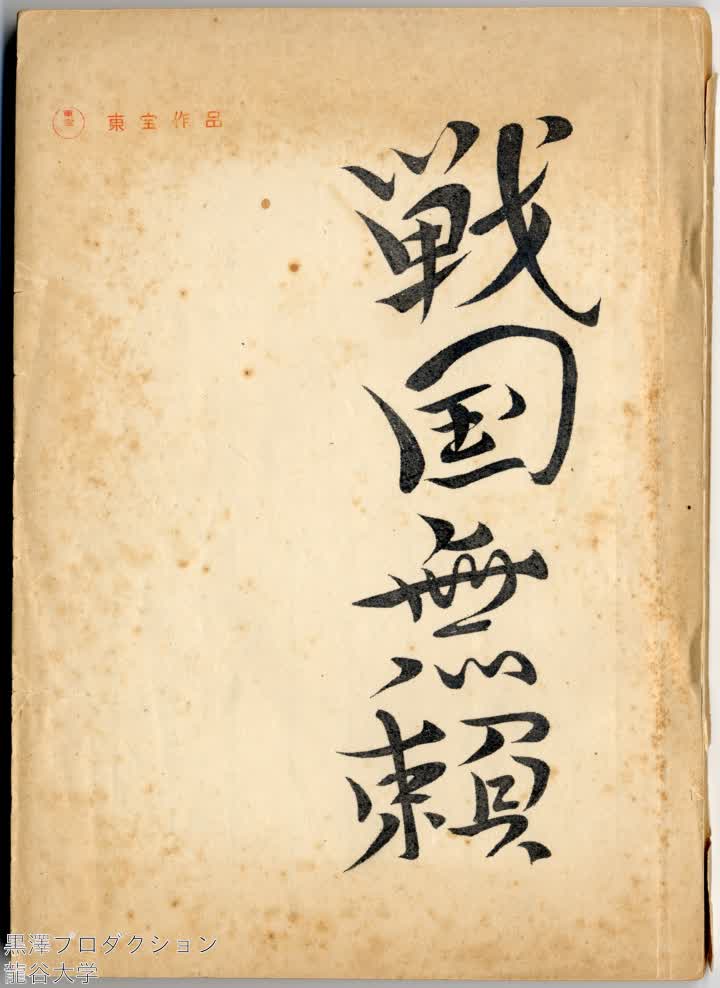 東宝
東宝作品
戦国無頼
黒澤プロダクション
龍谷大学